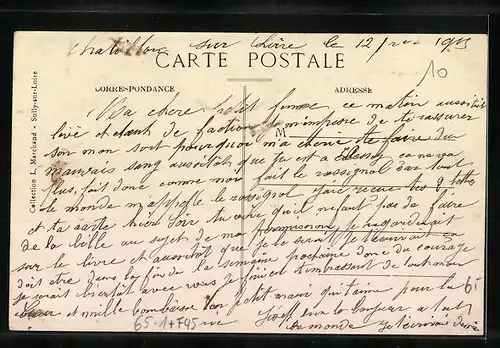 Chatillon sur Loire le 12 1915
CARTE POSTALE
10
CORRESPONDANCE
ADRESSE
Collection L. Marchand - Sully-sur-Loire
Ma chere petit femme, ce matin aussitot
levé et etant de faction je m'empresse de te rassurer
M
sur mon sort pourquoi ma cherie te faire du
mauvais sang aussitot que tu est a
plus, fait donc comme moi fait le rossignol car tout
le monde m'appelle le rossignol j'ai recue tes 2 lettres
et ta carte hier soir tu vois qu'il ne faut pas de faire
de la bille au sujet de ma permission je regardererait
sur le livre et aussitot que je le serai je t'ecrirait en
doit etre dans la fin de la semaine prochaine donc du courage
je serait bientot avec vous je finie en t'embrassant de tout mon
Coeur et mille bombaisse ton petit mari qui t'aime pour la
65-1+745 vie
Joseph bien le bonjour a tout
le monde